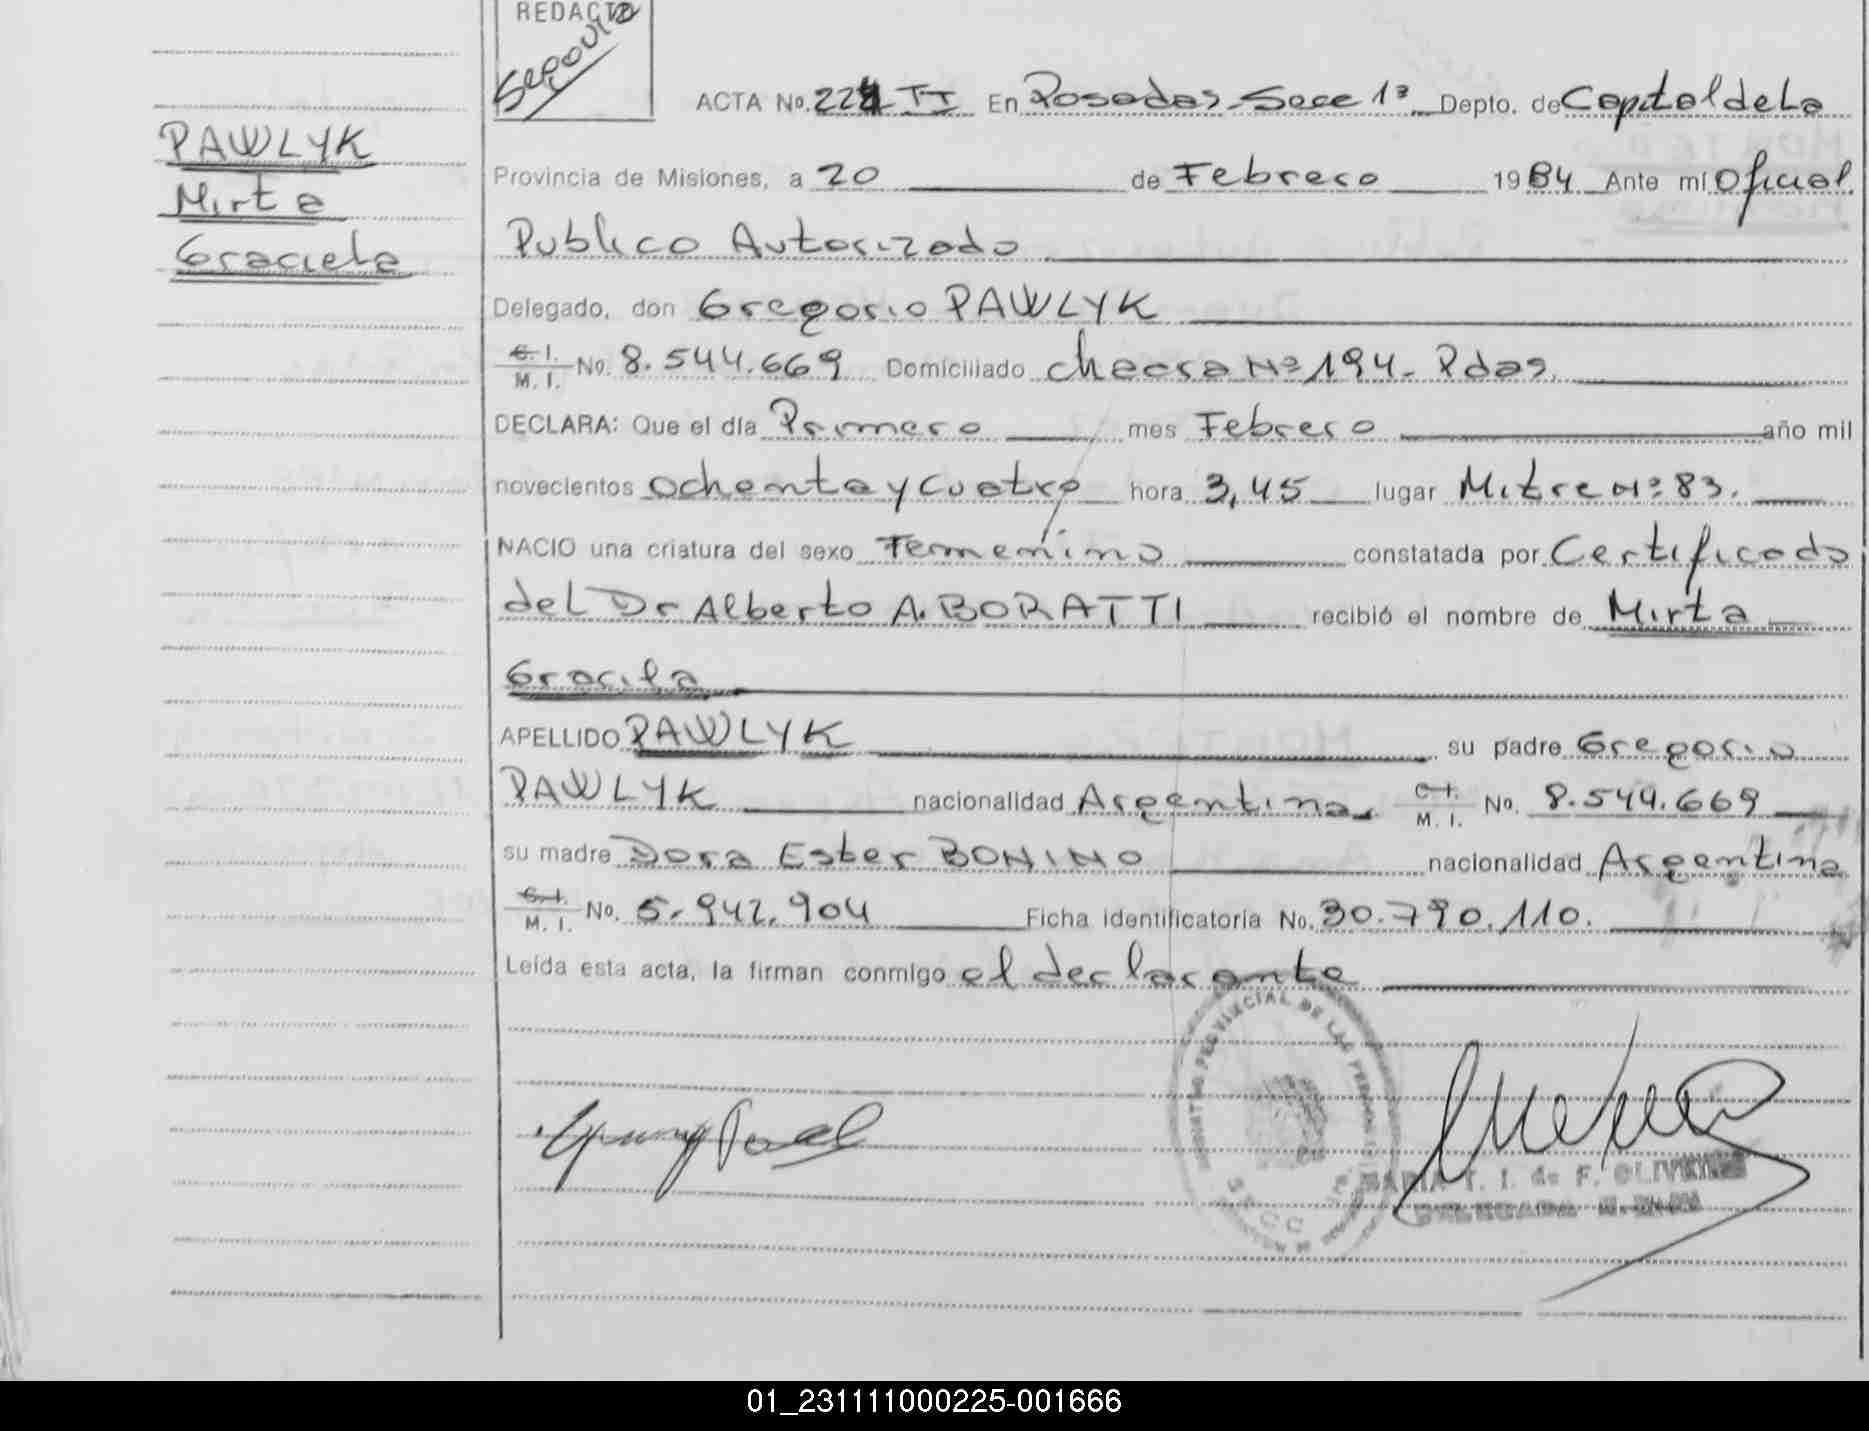 REDACTO
Segovia
PAWLYK
Mirta
Graciela
ACTA No. 224 TI En Posadas-Secc 1ª Depto. de Capital de La
Provincia de Misiones, a 20 de Febrero 1984 Ante mi Oficial
Publico Autorizado
Delegado, don Gregorio PAWLYK
C. I. / M. I. No. 8.544.669 Domiciliado chacra Nº 194. Pdas.
DECLARA: Que el día Primero mes Febrero año mil
novecientos ochenta y cuatro hora 3,45 lugar Mitre Nº 83.
NACIO una criatura del sexo Femenino constatada por Certificado
del Dr Alberto A. BORATTI recibió el nombre de Mirta
Gracila
APELLIDO PAWLYK su padre Gregorio
PAWLYK nacionalidad Argentina. C. I. / M. I. No. 8.544.669
su madre Dora Ester BONINO nacionalidad Argentina
C. I. / M. I. No. 5.942.904 Ficha identificatoria No. 30.790.110.
Leída esta acta, la firman conmigo el declarante
PROVINCIAL DE LAS PERSONAS
MARIA T. I. de F. OLIVEIRA
DELEGADA
01_231111000225-001666